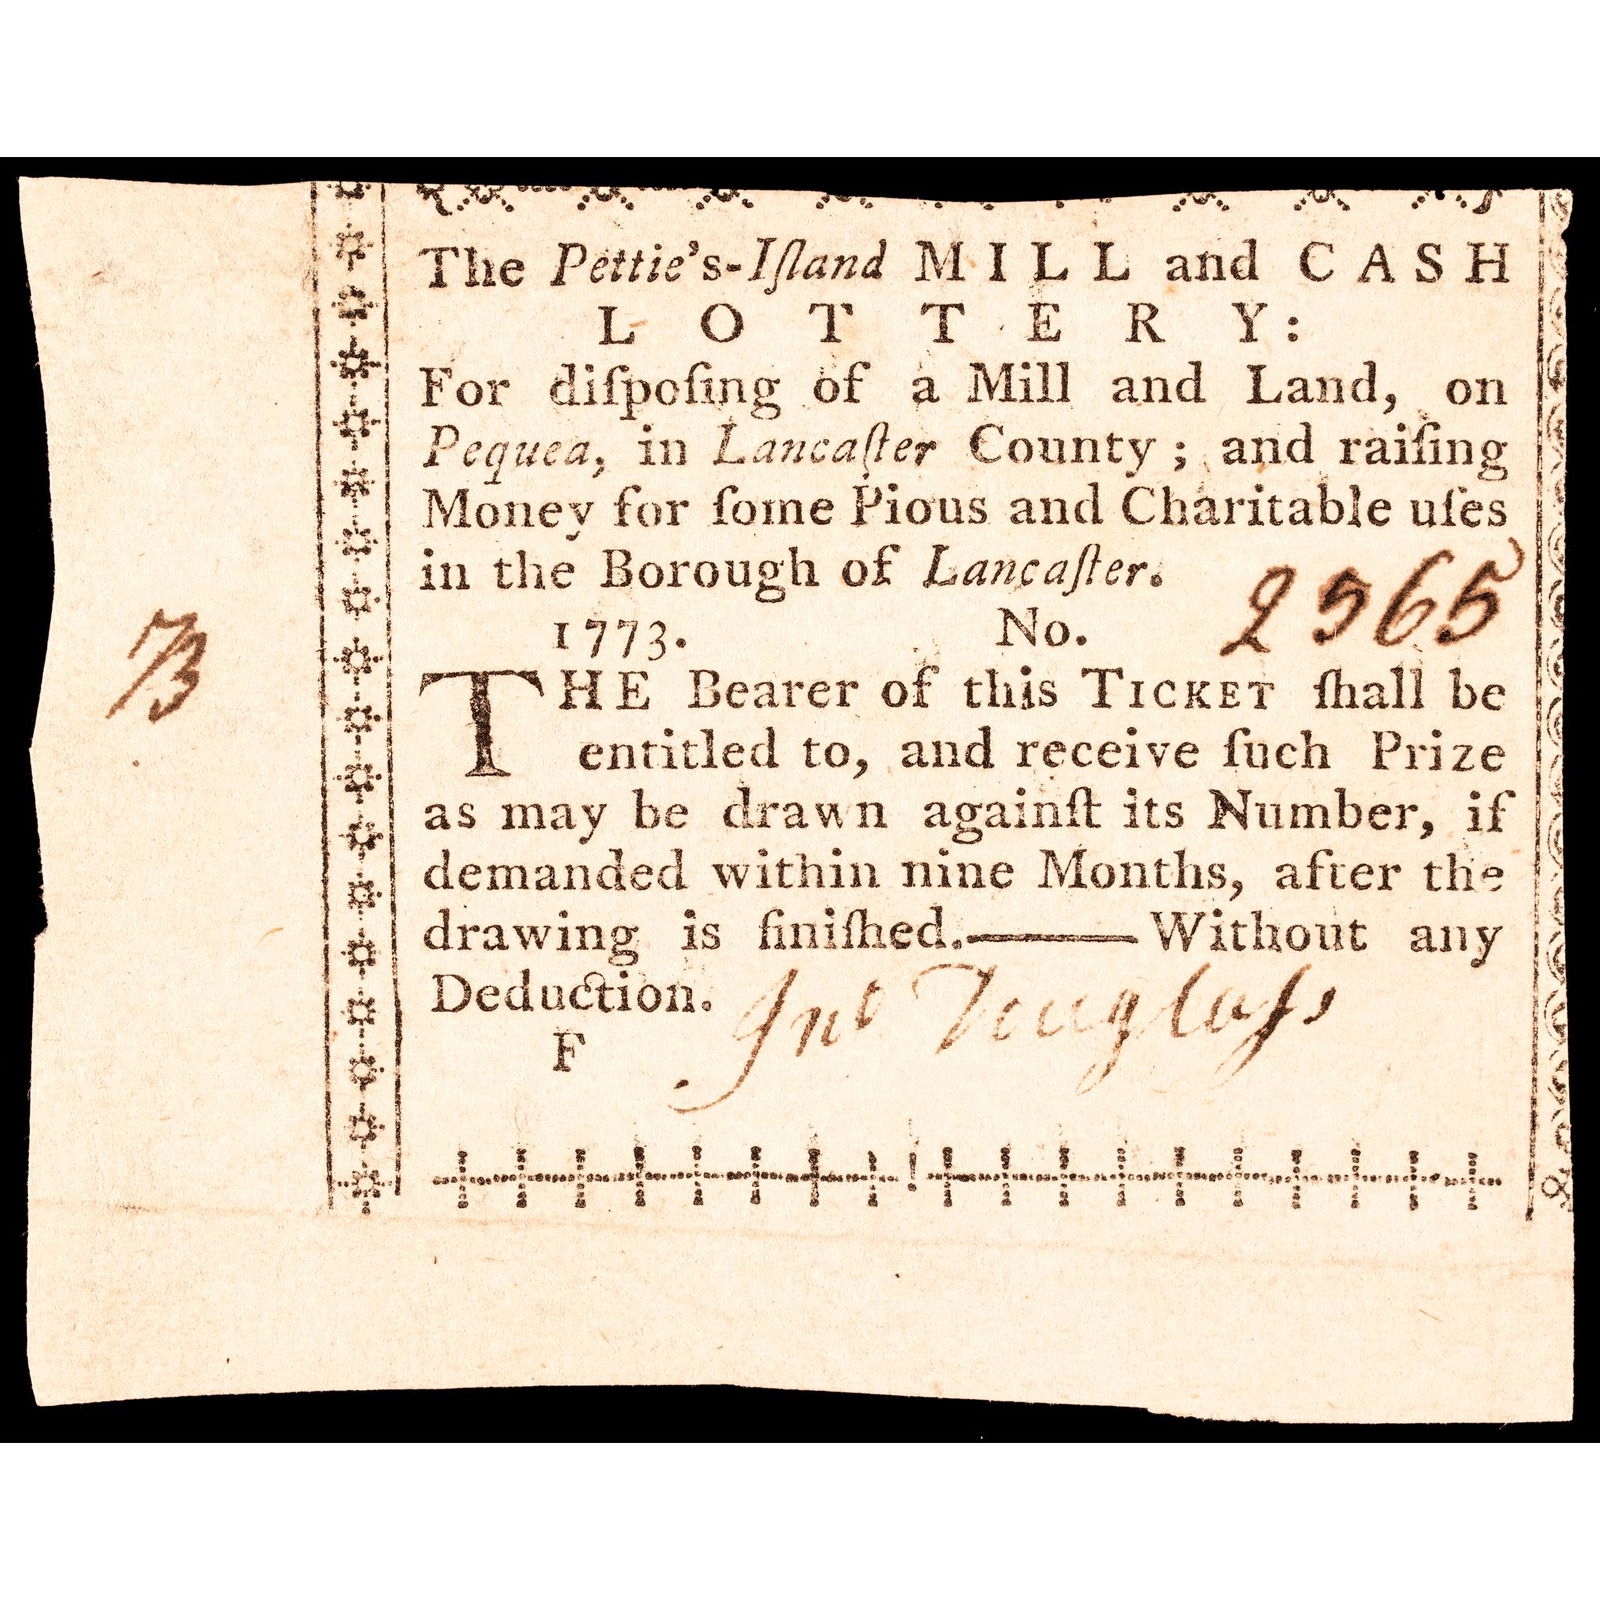 The Pettie's-Iſland MILL and CASH
LOTTERY:
For diſpoſing of a Mill and Land, on
Pequea, in Lancaſter County; and raiſing
Money for ſome Pious and Charitable uſes
in the Borough of Lancaſter.
1773. No. 2565
73
THE Bearer of this TICKET ſhall be
entitled to, and receive ſuch Prize
as may be drawn againſt its Number, if
demanded within nine Months, after the
drawing is finiſhed.—Without any
Deduction.
F
Jno Douglaſs